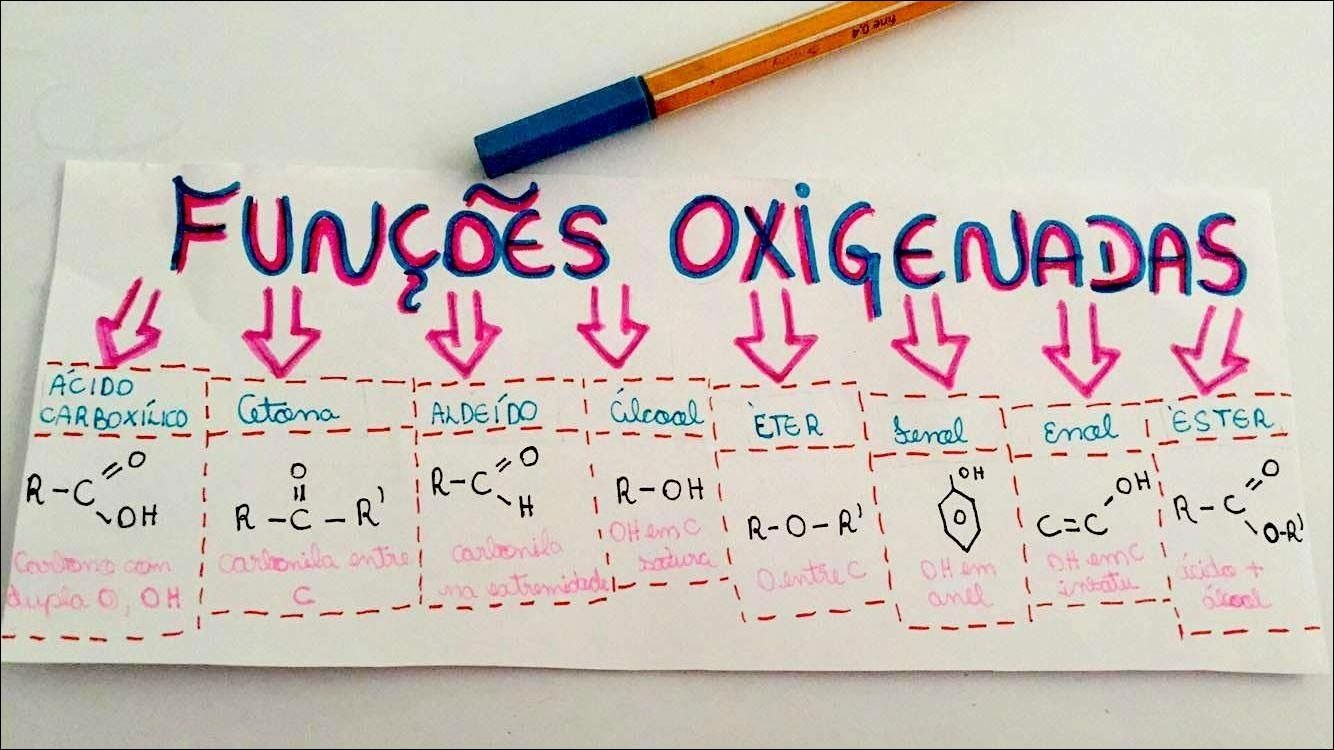 fine 0,4
FUNÇÕES OXIGENADAS
ÁCIDO
CARBOXÍLICO
R-C
O
OH
Carbono com
dupla O, OH
Cetona
O
R-C-R'
carbonila entre
C
ALDEÍDO
R-C
O
H
carbonila
na extremidade
álcool
R-OH
OH em C
ÉTER
R-O-R'
O entre C
Fenol
OH
OH em
anel
Enol
OH
C=C
OH em C
ÉSTER
R-C
O
O-R'
ácido +
álcool